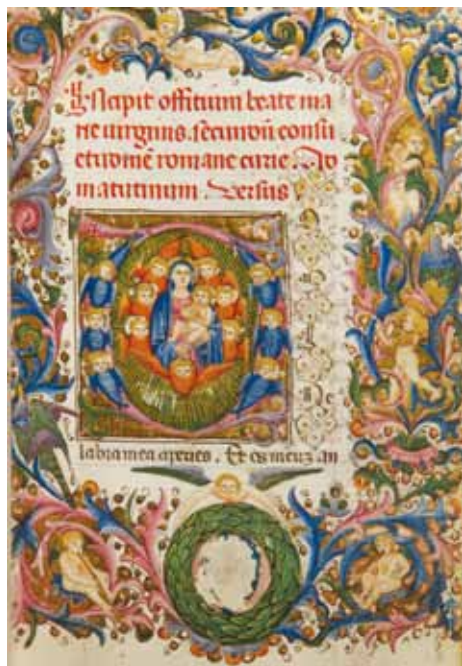 Incipit offitium beate ma
rie uirginis. secundū consu
etudinē romane curie. Ad
matutinum. Versus
D
ne
labia mea aperies. Et os meuz an